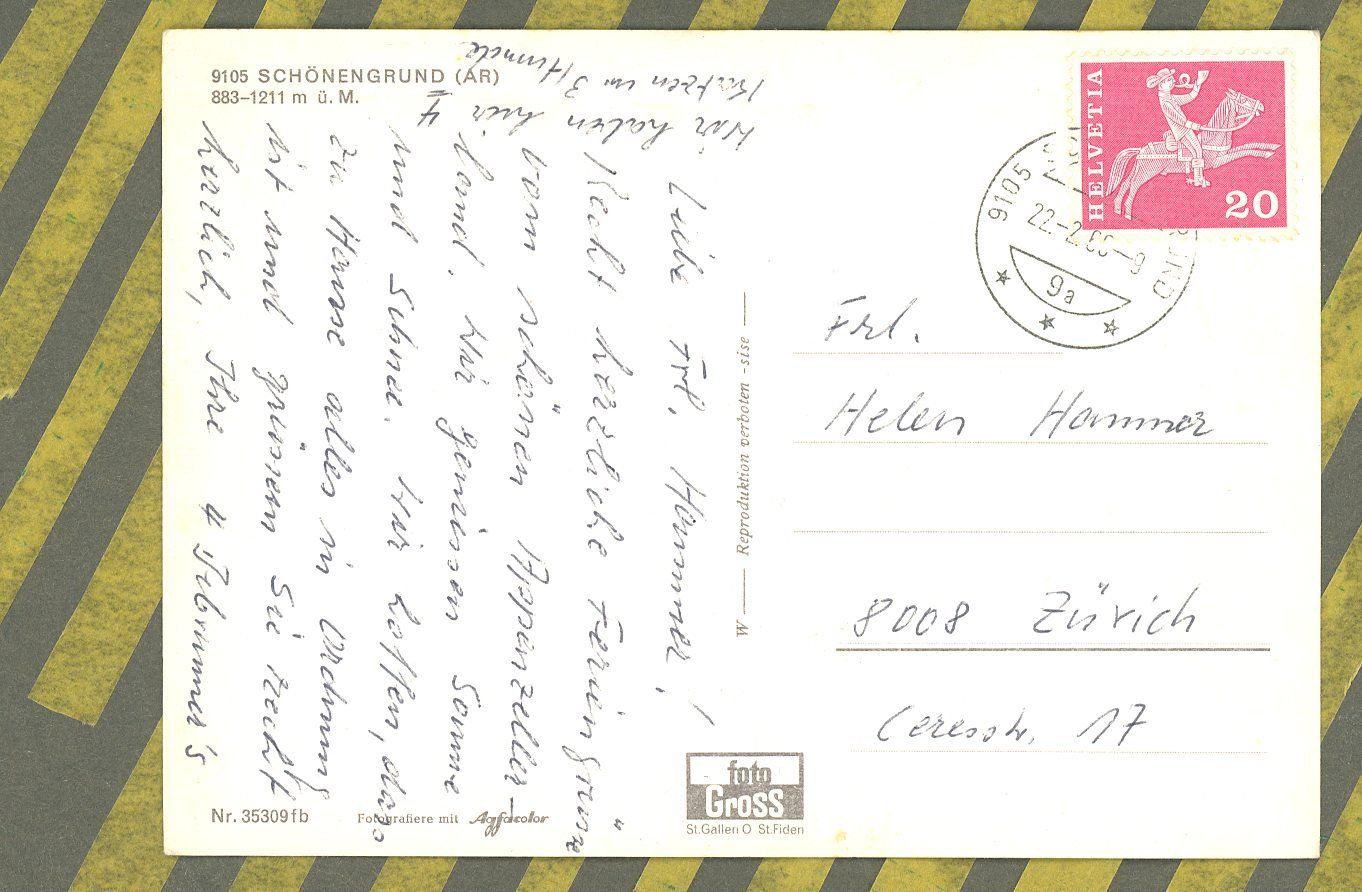 9105 SCHÖNENGRUND (AR)
883–1211 m ü. M.
Wir haben hier 4
Katzen u 3 Hunde
Liebe Frl. Hammer!
Recht herzliche Feriengrüsse
vom schönen Appenzeller-
land. Wir geniessen Sonne
und Schnee. Wir hoffen, dass
zu Hause alles in Ordnung
ist und grüssen Sie recht
herzlich, Ihre 4
W — Reproduktion verboten -sise —
HELVETIA
20
9105
22.-2
–9
9a
Frl.
Helen Hammer
8008 Zürich
Ceresstr. 17
foto
Gross
St.Gallen O St.Fiden
Nr. 35309fb
Fotografiere mit Agfacolor